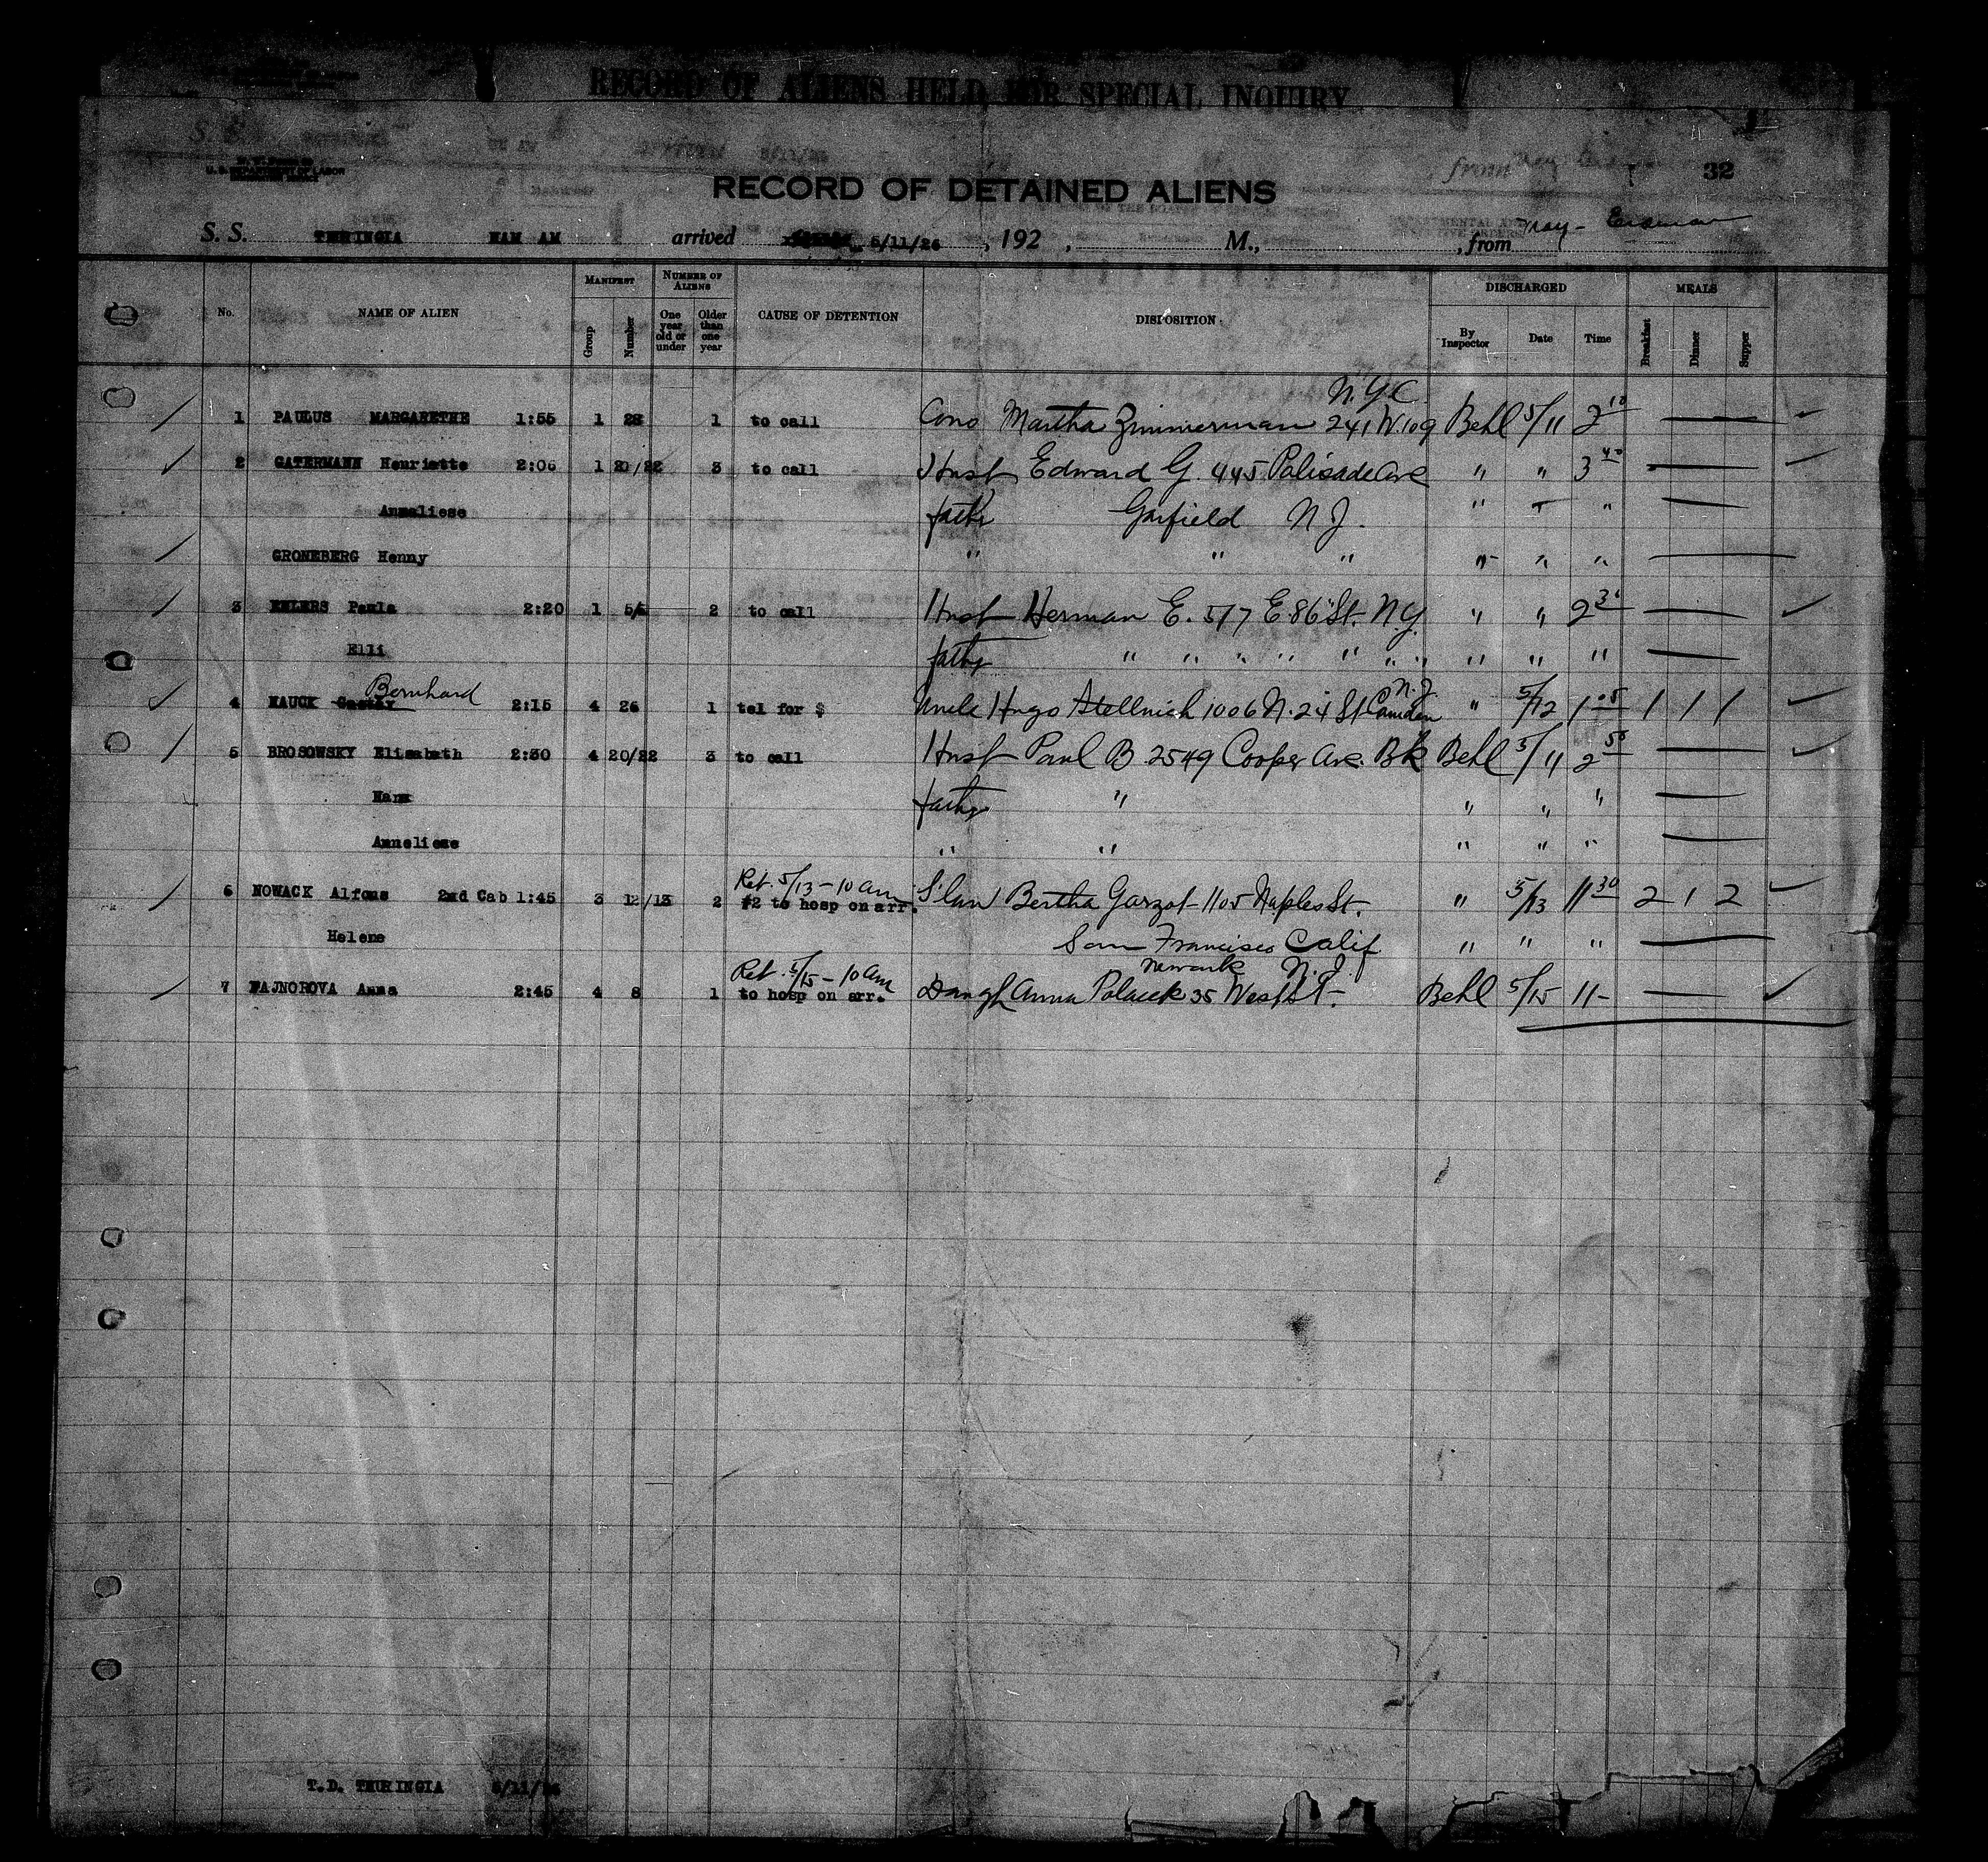 RECORD OF ALIENS HELD FOR SPECIAL INQUIRY
U. S. DEPARTMENT OF LABOR
32
RECORD OF DETAINED ALIENS
S. S. THURINGIA HAM AM arrived 5/11/26, 192 , M., , from
No. NAME OF ALIEN MANIFEST Group Number NUMBER OF ALIENS One year old or under Older than one year CAUSE OF DETENTION DISPOSITION DISCHARGED By Inspector Date Time MEALS Breakfast Dinner Supper
N.Y.C.
1 PAULUS MARGARETHE 1:55 1 28 1 to call Martha Zimmerman 241 W. 109 Behl 5/11 2 10
2 GATERMANN Henriette 2:06 1 20/22 3 to call Husb Edward G. 445 Palisade Ave " " 3 40
Annaliese fathr Garfield N J. " "
GRONEBERG Henny " " " " " "
3 EHLERS Paula 2:20 1 5/6 2 to call Husb Herman E. 517 E. 86" St. N.Y. " " 2 30
Elli fathr " " " " " " " " " "
Bernhard
4 HAUCK Gustav 2:15 4 26 1 tel for $ Uncle Hugo Stellnich 1006 N. 24 St Camden N.J. " 5/12 1 05 1 1 1
5 BROSOWSKY Elisabeth 2:30 4 20/22 3 to call Husb Paul B. 2549 Cooper Ave. Bk Behl 5/11 2 50
Hans fathr " " " "
Anneliese " " " " "
Ret. 5/13 - 10 am
6 NOWACK Alfons 2nd Cab 1:45 3 12/13 2 #2 to hosp on arr. S'law Bertha Garzot 1105 Naples St. " 5/13 11 30 2 1 2
Helene San Francisco Calif. " " "
Ret. 5/15 - 10 am Newark N. J.
7 FAJNOROVA Anna 2:45 4 8 1 to hosp on arr. Daugh Anna Polacek 35 West St. Behl 5/15 11-
T.D. THURINGIA 5/11/26